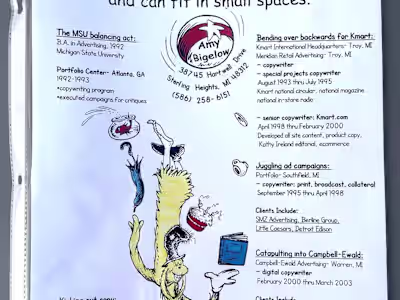 and can fit in small spaces.
The MSU balancing act:
B.A. in Advertising, 1992
Michigan State University
Portfolio Center- Atlanta, GA
1992-1993
•copywriting program
•executed campaigns for critiques
Amy
Bigelow
38745 Hartwell Drive
Sterling Heights, MI 48312
(586) 258-6151
Bending over backwards for Kmart:
Kmart International Headquarters- Troy, MI
Meridian Retail Advertising- Troy, MI
- copywriter
- special projects copywriter
August 1993 thru July 1995
Kmart national circular, national magazine
national in-store radio
- senior copywriter: Kmart.com
April 1998 thru February 2000
Developed all site content, product copy,
Kathy Ireland editorial, ecommerce
Juggling ad campaigns:
Portfolio- Southfield, MI
- copywriter: print, broadcast, collateral
September 1995 thru April 1998
Clients Include:
SMZ Advertising, Berline Group,
Little Caesars, Detroit Edison
Catapulting into Campbell-Ewald:
Campbell-Ewald Advertising- Warren, MI
- digital copywriter
February 2000 thru March 2003
Clients Include: